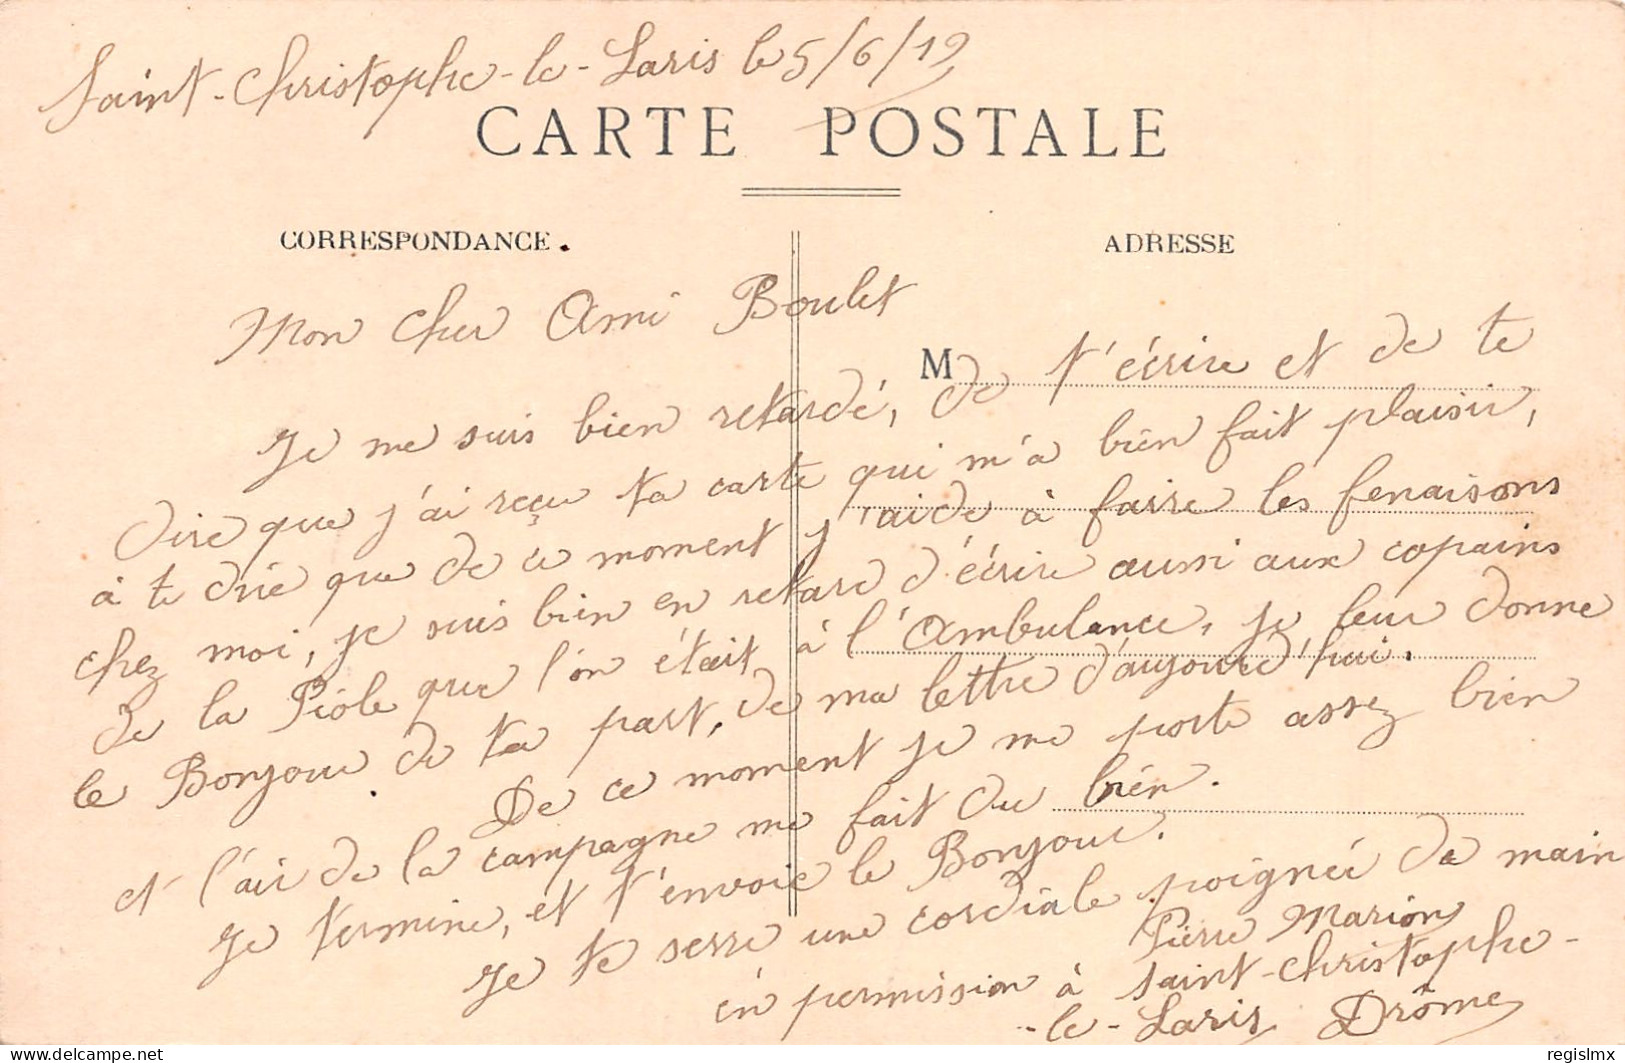 Saint-Christophe-le-Laris le 5/6/19
CARTE POSTALE
CORRESPONDANCE.
ADRESSE
Mon cher Ami Boulet
M
Je me suis bien retardé, de t'écrire et de te
dire que j'ai reçu ta carte qui m'a bien fait plaisir,
à te dire que de ce moment j'aide à faire les fenaisons
chez moi, je suis bien en retard d'écrire aussi aux copains
de la Piole que l'on était à l'Ambulance, je leur donne
le Bonjour de ta part, de ma lettre d'aujourd'hui.
De ce moment je me porte assez bien
et l'air de la campagne me fait du bien.
Je termine, et t'envoie le Bonjour.
Je te serre une cordiale poignée de main
Pierre Marion
en permission à Saint-Christophe-
-le-Laris Drôme
www.delcampe.net
regislmx